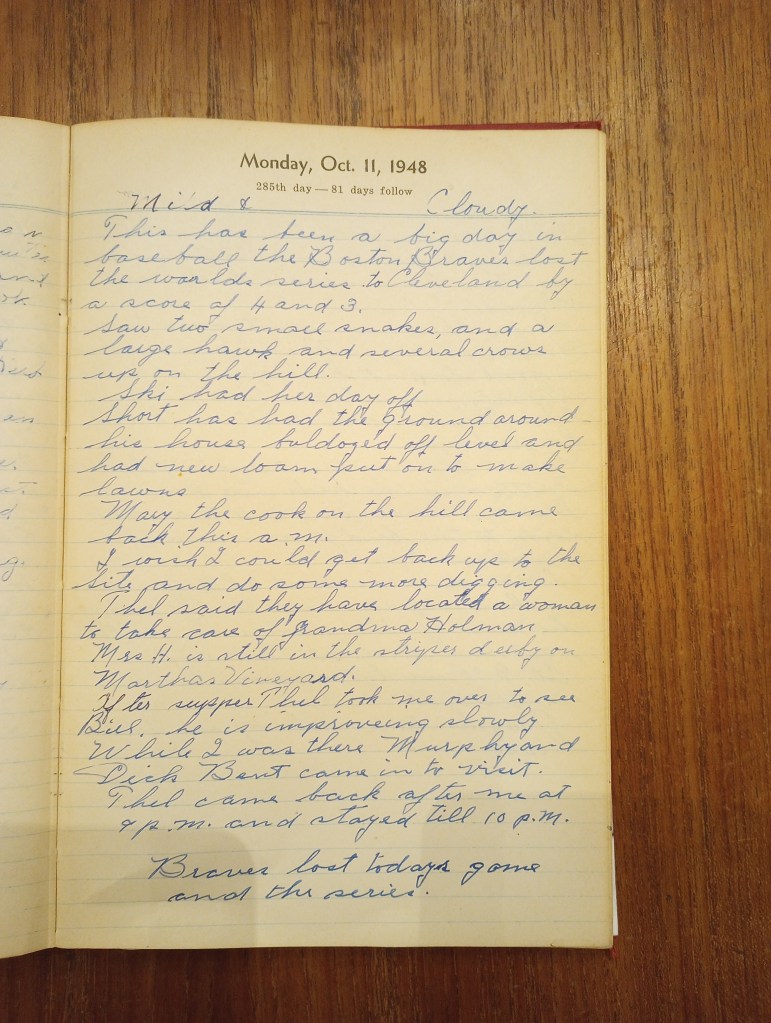 Monday, Oct. 11, 1948
285th day — 81 days follow
Mild & Cloudy.
This has been a big day in
baseball the Boston Braves lost
the worlds series to Cleveland by
a score of 4 and 3.
Saw two small snakes, and a
large hawk and several crows
up on the hill.
Ski had her day off
Short has had the ground around
his house buldozed off level and
had new loam put on to make
lawns
Mary the cook on the hill came
back this a.m.
I wish I could get back up to the
site and do some more digging.
Thel said they have located a woman
to take care of grandma Holman
Mrs H. is still in the striper derby on
Marthas Vineyard.
After supper Thel took me over to see
Bill, he is improveing slowly
While I was there Murphy and
Dick Bent came in to visit.
Thel came back after me at
9 p.m. and stayed till 10 p.m.
Braves lost todays game
and the series.